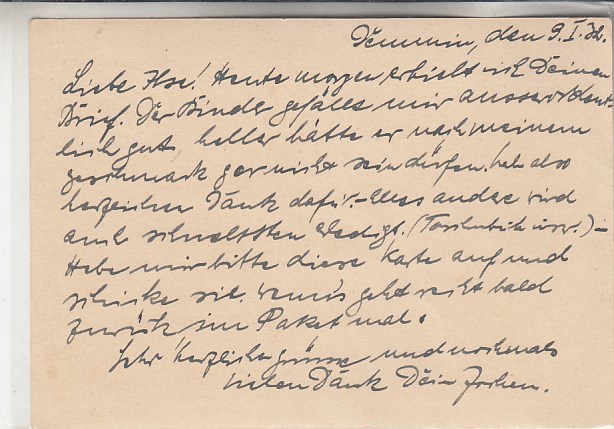 Demmin, den 9.I.32.
Liebe Ilse! Heute morgen erhielt ich Deinen
Brief. Der Binder gefällt mir ausserordent-
lich gut, heller hätte er nach meinem
Geschmack gar nicht sein dürfen. hab also
herzlichen Dank dafür. – Alles andre wird
auch schnellstens erledigt. (usw.) –
Hebe mir bitte diese Karte auf und
schicke sie, wenn's geht recht bald
zurück im Paket mal.
Sehr herzliche Grüsse und nochmals
vielen Dank Dein Jochen.